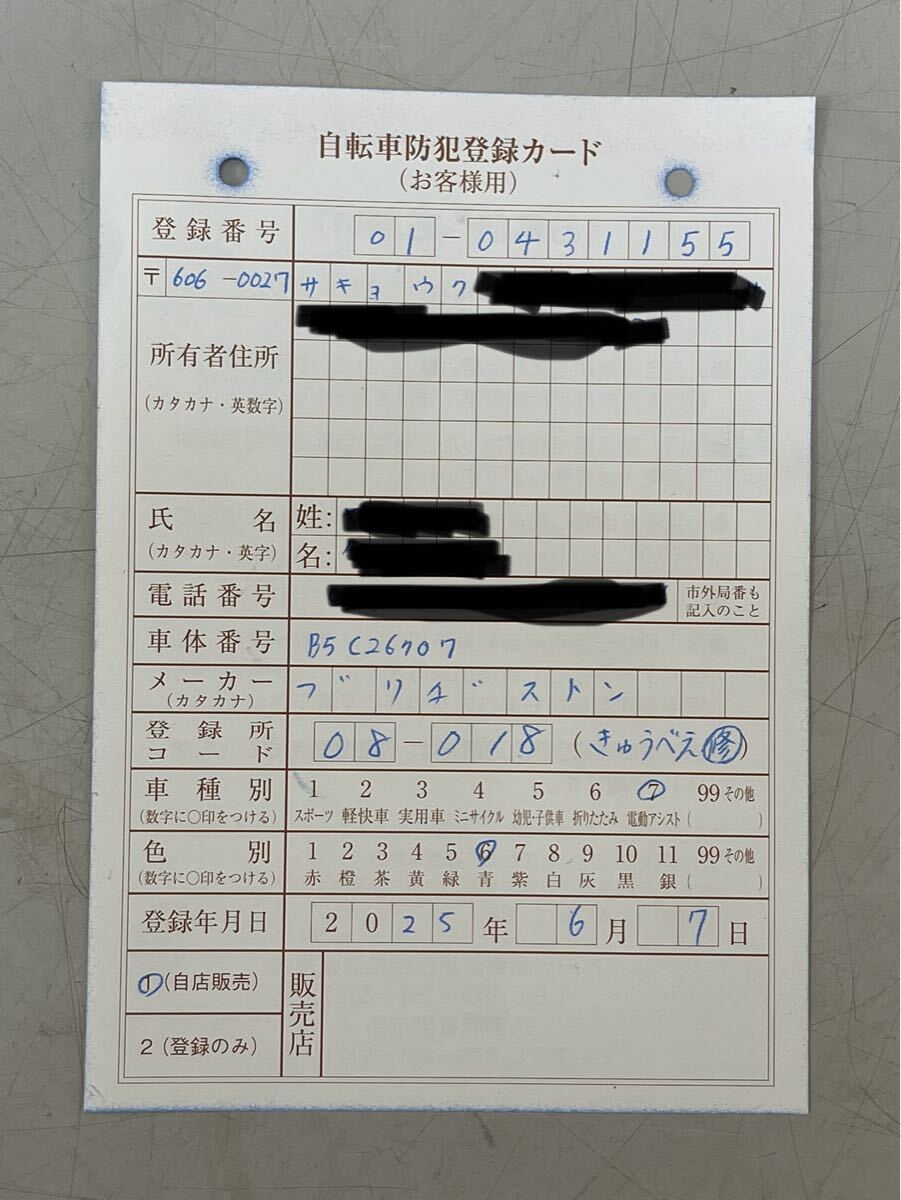 自転車防犯登録カード
(お客様用)
登録番号 01-0431155
〒606-0027 サキョウク
所有者住所
(カタカナ・英数字)
氏名 姓:
(カタカナ・英字) 名:
電話番号 市外局番も
記入のこと
車体番号 B5C26707
メーカー ブリヂストン
(カタカナ)
登録所 08-018 (きゅうべえ修)
コード
車種別 1 2 3 4 5 6 7 99その他
(数字に〇印をつける) スポーツ 軽快車 実用車 ミニサイクル 幼児・子供車 折りたたみ 電動アシスト ( )
色別 1 2 3 4 5 6 7 8 9 10 11 99その他
(数字に〇印をつける) 赤 橙 茶 黄 緑 青 紫 白 灰 黒 銀 ( )
登録年月日 2025年 6月 7日
1(自店販売) 販売店
2(登録のみ)